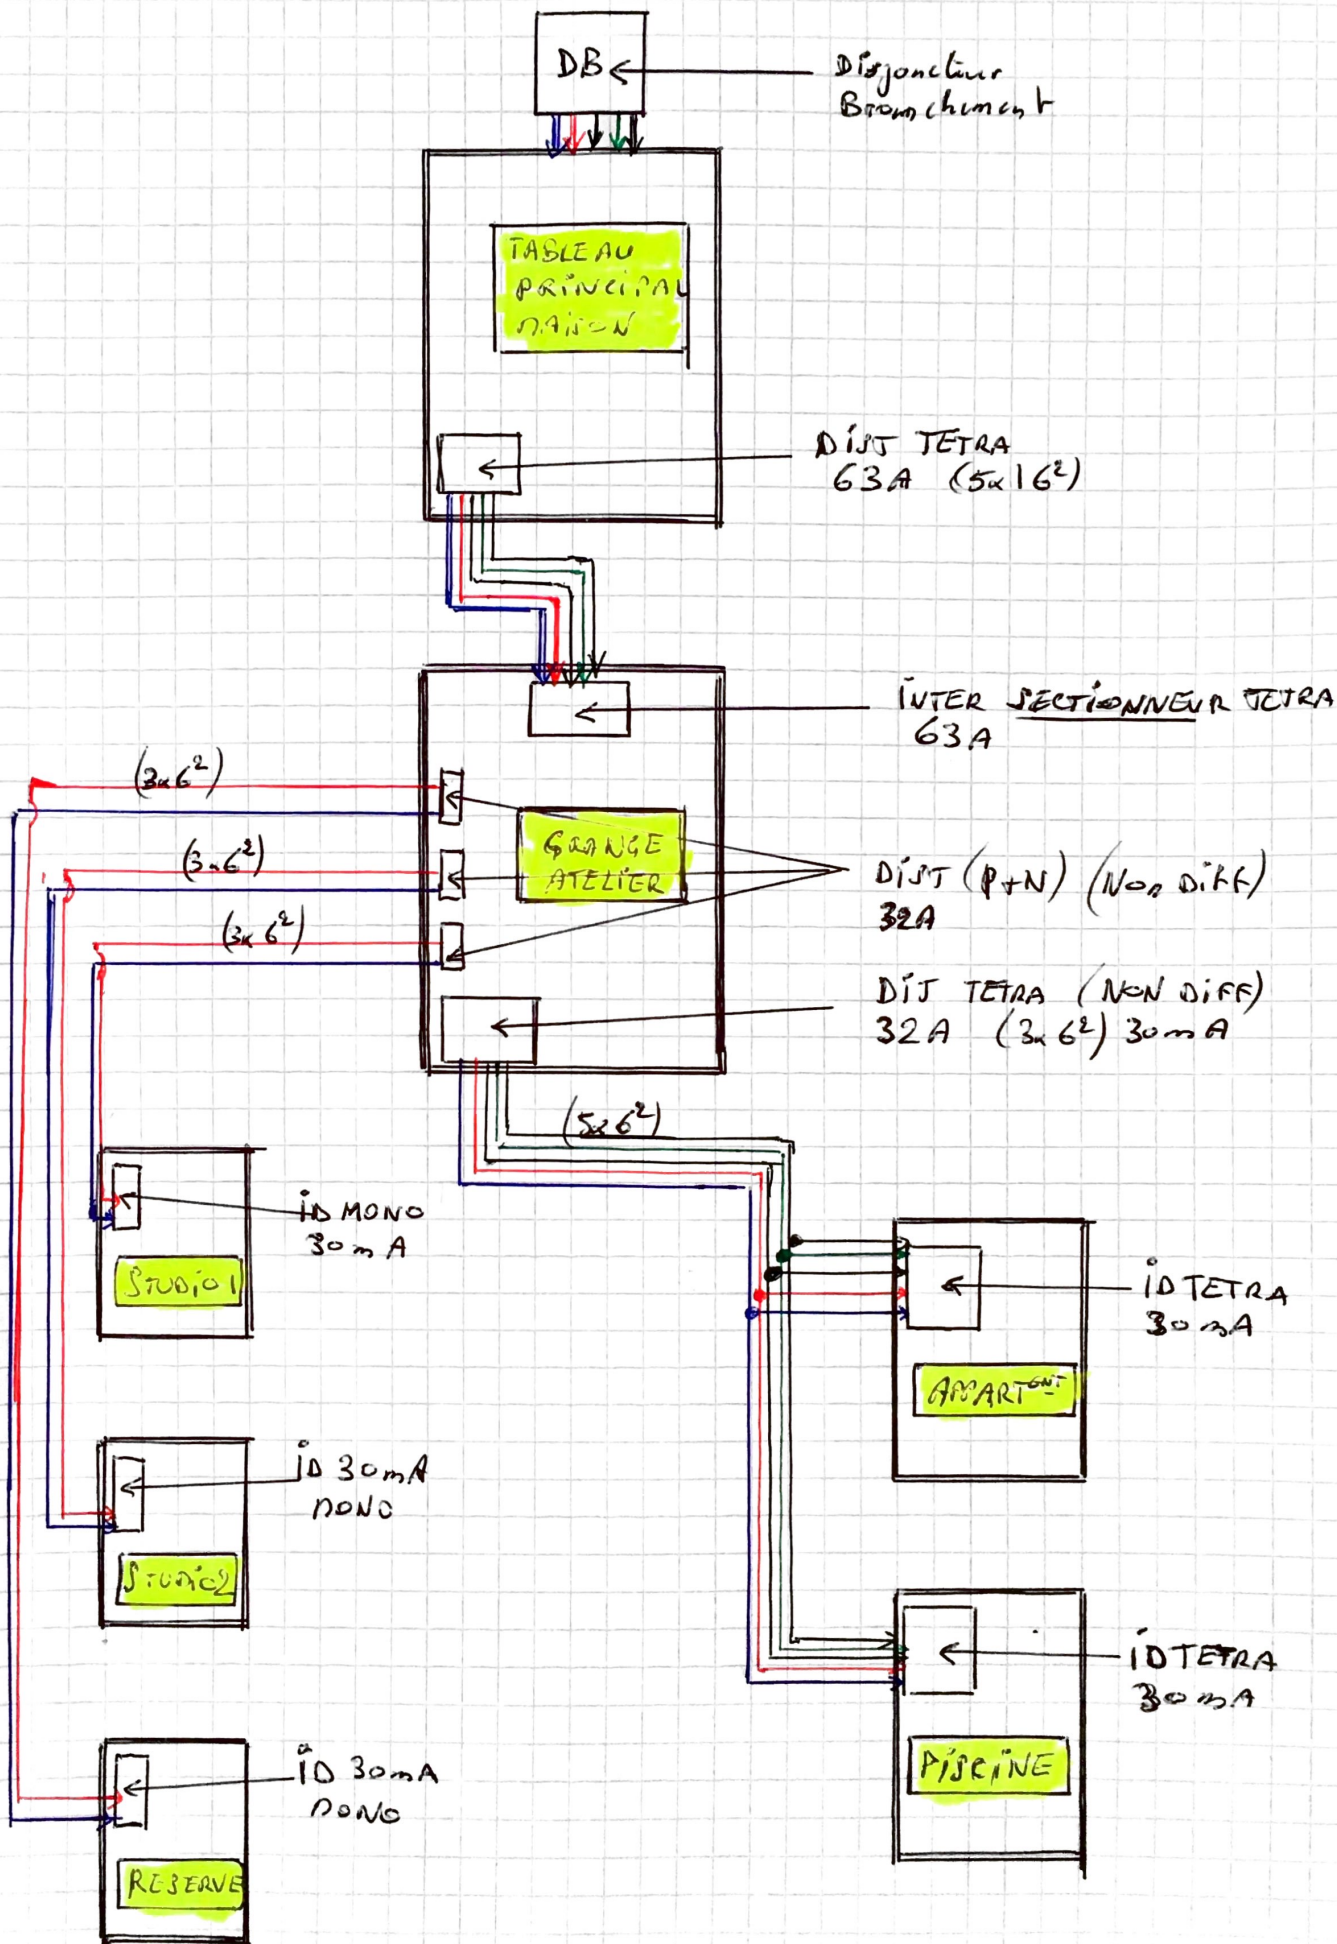 DB
Disjoncteur
Branchement
TABLEAU
PRINCIPAL
MAISON
DIST TETRA
63A (5x16²)
INTER SECTIONNEUR TETRA
63A
(3x6²)
(3x6²)
(3x6²)
GRANGE
ATELIER
DIST (P+N) (NON DIFF)
32A
DIJ TETRA (NON DIFF)
32A (3x6²) 30mA
(5x6²)
ID MONO
30mA
STUDIO 1
ID TETRA
30mA
APPARTENT
ID 30mA
MONO
STUDIO2
ID TETRA
30mA
PISCINE
ID 30mA
MONO
RESERVE